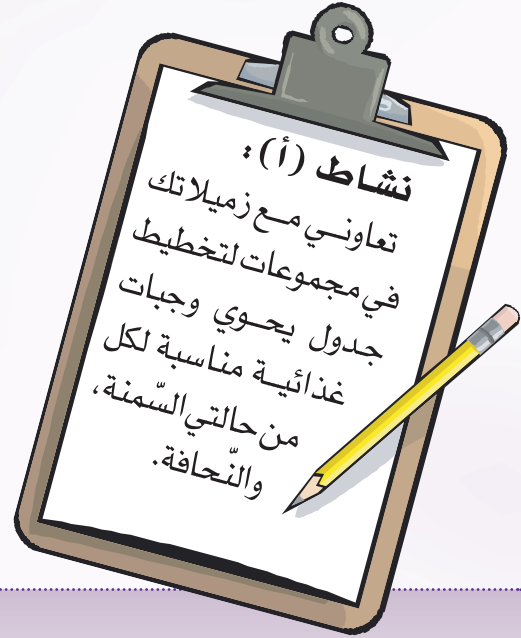 نشاط (أ):
تعاوني مع زميلاتك
في مجموعات لتخطيط
جدول يحوي وجبات
غذائية مناسبة لكل
من حالتي السّمنة،
والنّحافة.